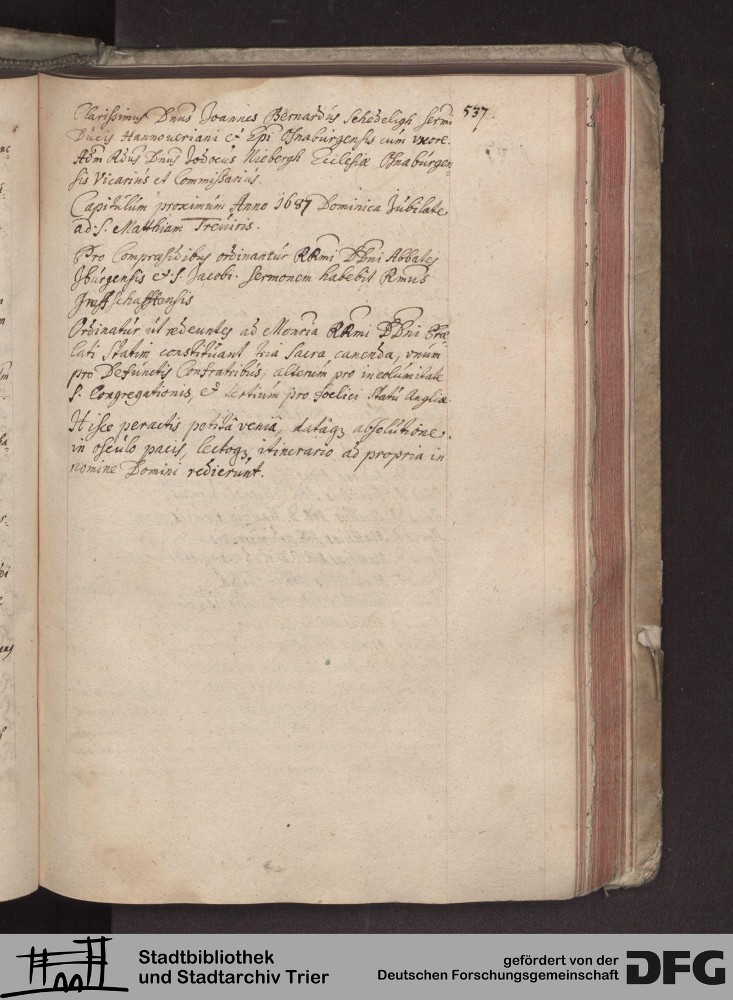 537.
Clarissimus Dnus Joannes Bernardus Schedeligh sermi
Ducis Hannoueriani et Epi Osnaburgensis cum uxore.
Adm Rdus Dnus Jodocus Niebergh Ecclesiæ Osnaburgen=
sis Vicarius et Commissarius.
Capitulum proximum Anno 1687 Dominica Jubilate
ad S. Matthiam Treuiris.
Pro Compræsidibus ordinantur RRmi DDni Abbates
Jburgensis et S. Jacobi. Sermonem habebit Rmus
Graffschafftensis
Ordinatur ut redeuntes ad Monria RRmi DDni Præ=
lati statim constituant tria sacra canenda, unum
pro Defunctis Confratribus, alterum pro incolumitate
S. Congregationis, et tertium pro foelici statu Angliæ.
Hisce peractis petitâ veniâ, datâq3 absolutione.
in osculo pacis, lectoq3 itinerario ad propria in
nomine Domini redierunt.
Stadtbibliothek
und Stadtarchiv Trier
gefördert von der
Deutschen Forschungsgemeinschaft
DFG